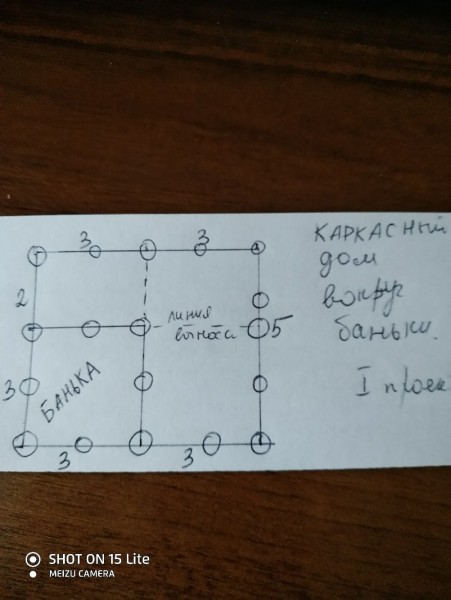 3 3
2
линия
выноса
5
3
БАНЬКА
3 3
КАРКАСНЫЙ
дом
вокруг
баньки.
I проек
SHOT ON 15 Lite
MEIZU CAMERA